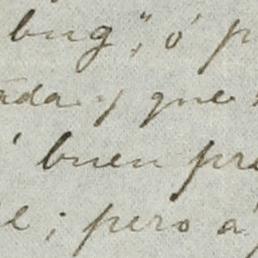 bug", ó p
ada y que
buen pre
e; pero á